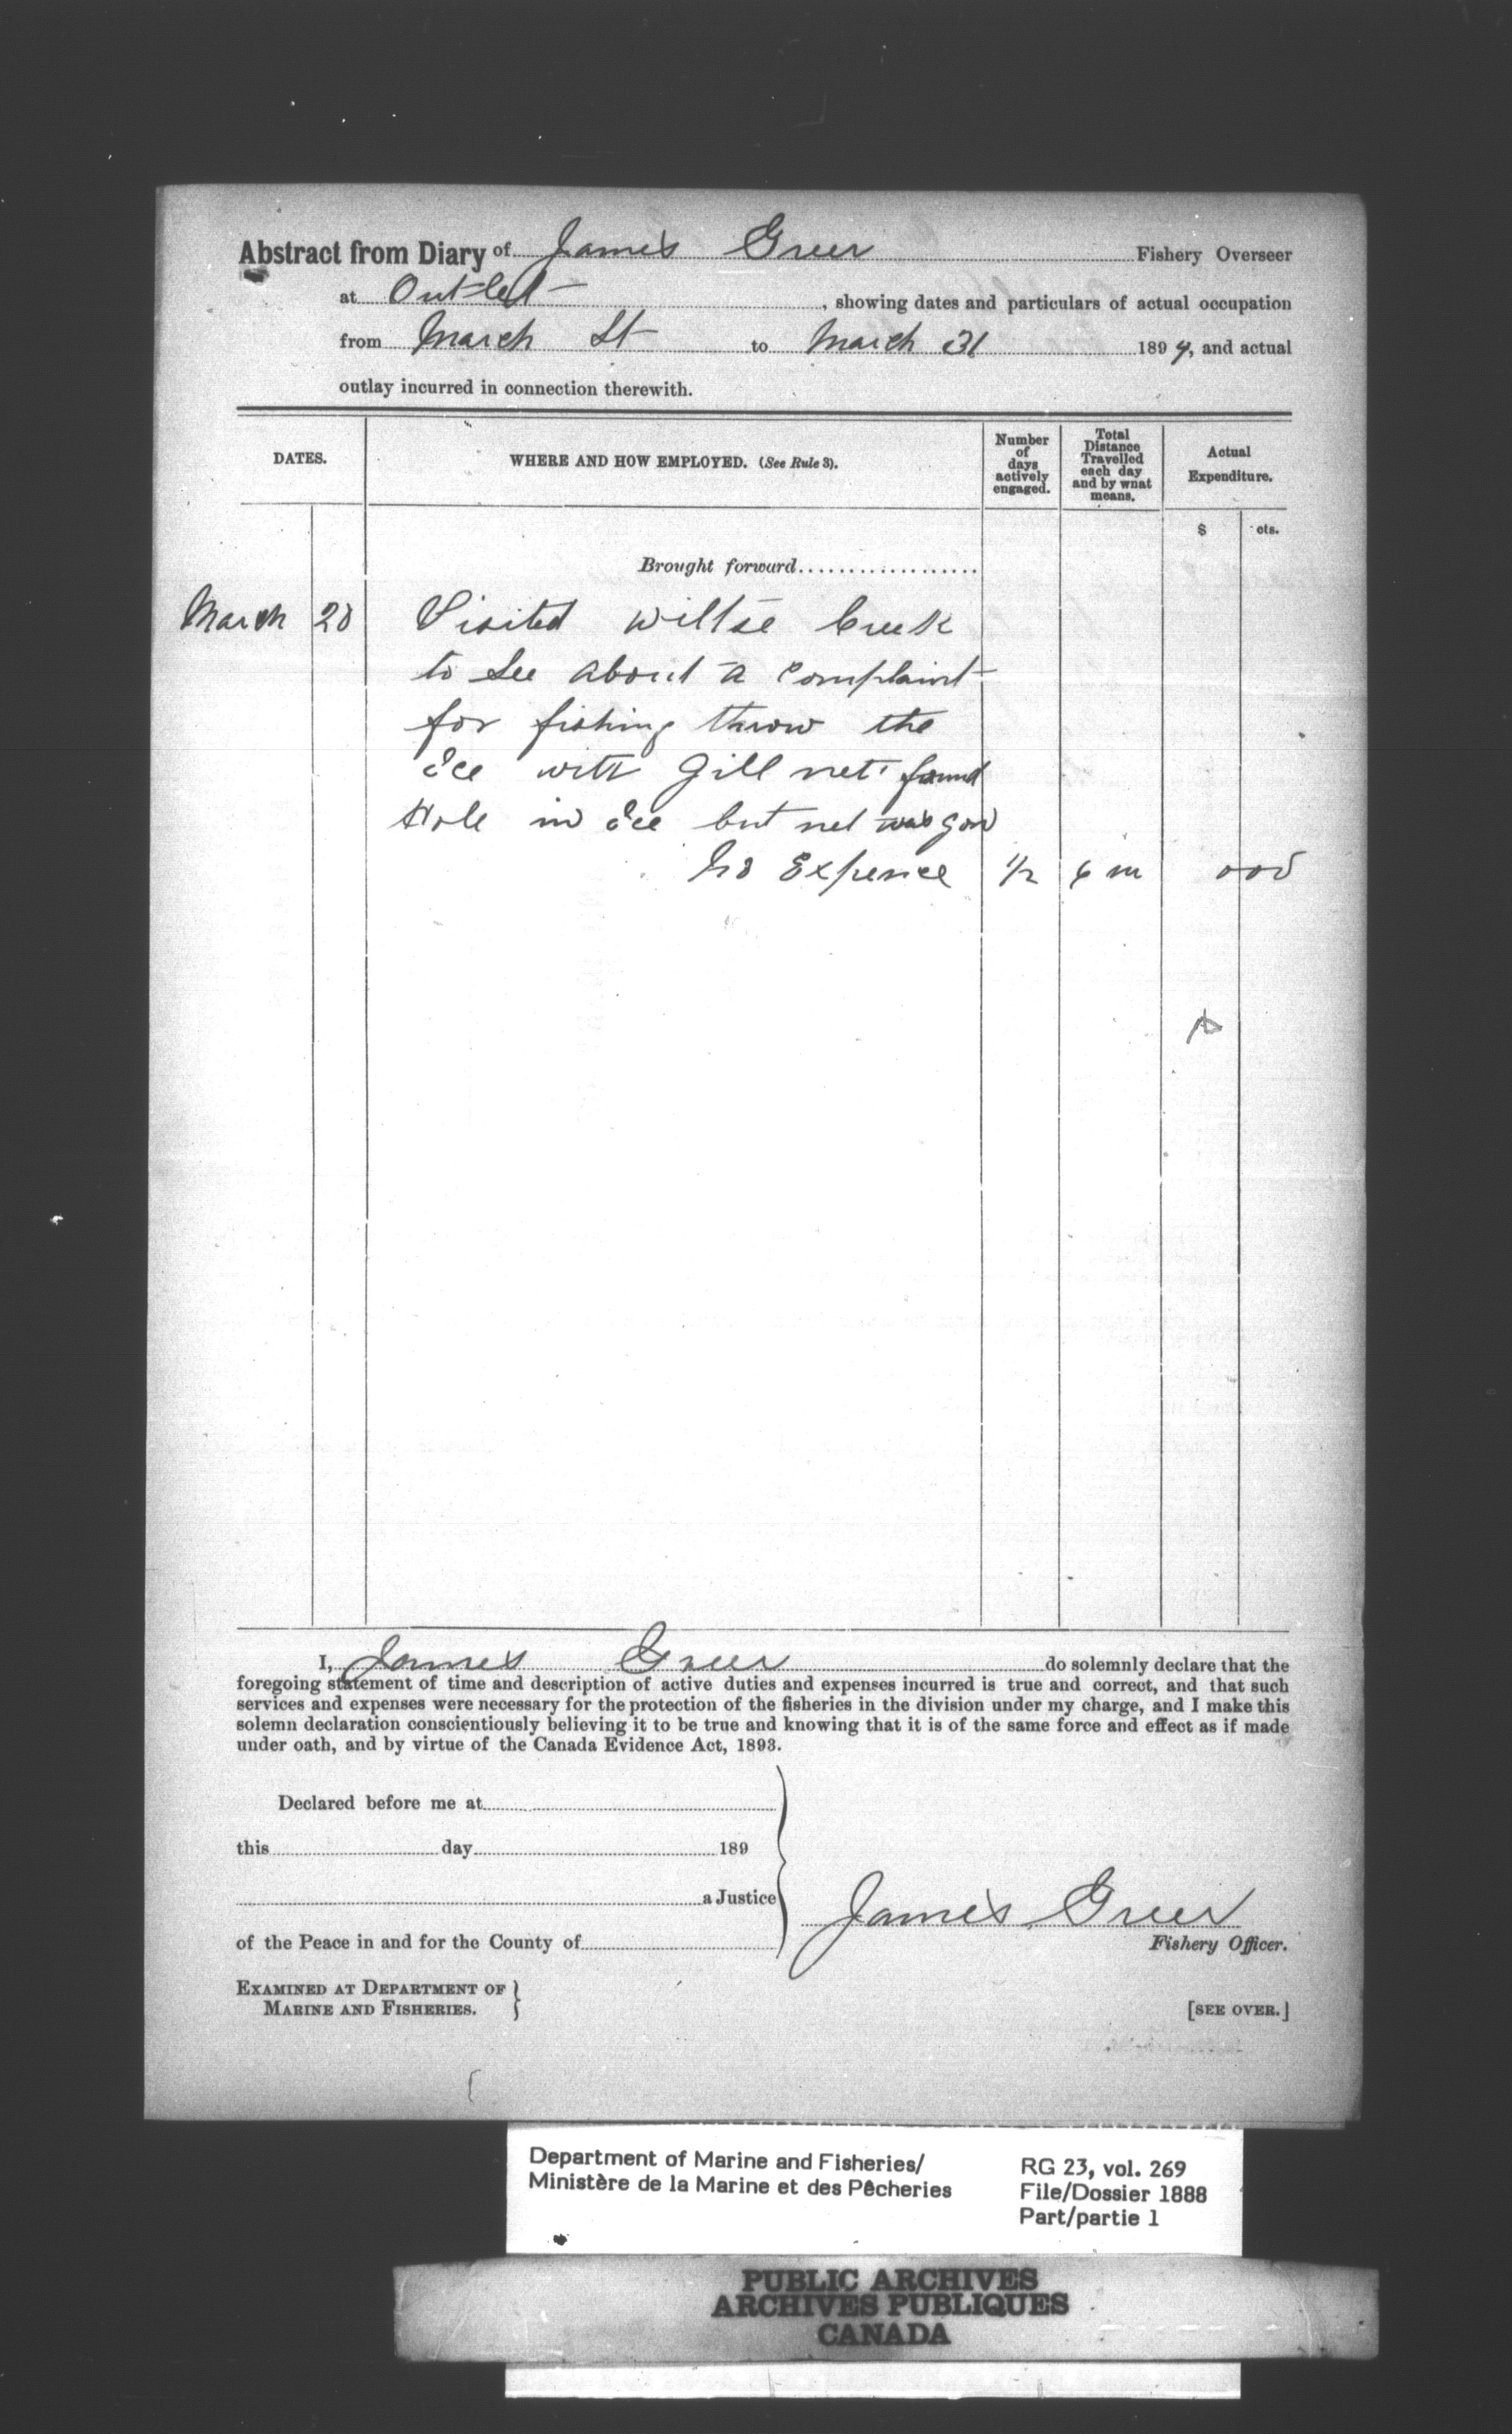 Abstract from Diary of James Greer Fishery Overseer
at Outlet, showing dates and particulars of actual occupation
from March 1st to March 31 1894, and actual
outlay incurred in connection therewith.
DATES.
WHERE AND HOW EMPLOYED. (See Rule 3).
Number of days actively engaged.
Total Distance Travelled each day and by what means.
Actual Expenditure.
$ cts.
Brought forward
March 28 Visited Wiltse Creek
to See about a Complaint
for fishing throw the
Ice with Gill net found
Hole in Ice but net was gon
No Expence 1/2 6 m 000
I, James Greer do solemnly declare that the
foregoing statement of time and description of active duties and expenses incurred is true and correct, and that such
services and expenses were necessary for the protection of the fisheries in the division under my charge, and I make this
solemn declaration conscientiously believing it to be true and knowing that it is of the same force and effect as if made
under oath, and by virtue of the Canada Evidence Act, 1893.
Declared before me at
this day 189
a Justice
of the Peace in and for the County of
James Greer
Fishery Officer.
EXAMINED AT DEPARTMENT OF
MARINE AND FISHERIES.
[SEE OVER.]
Department of Marine and Fisheries/
Ministère de la Marine et des Pêcheries
RG 23, vol. 269
File/Dossier 1888
Part/partie 1
PUBLIC ARCHIVES
ARCHIVES PUBLIQUES
CANADA